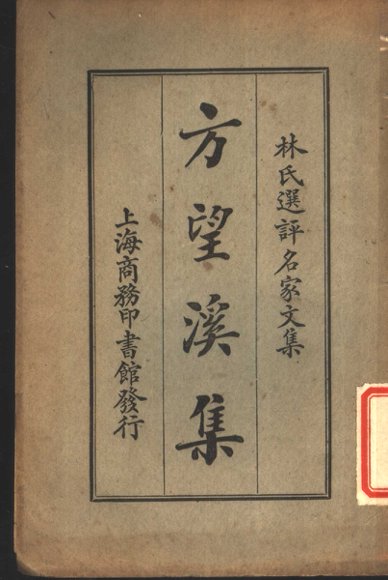 林氏選評名家文集
方望溪集
上海商務印書館發行